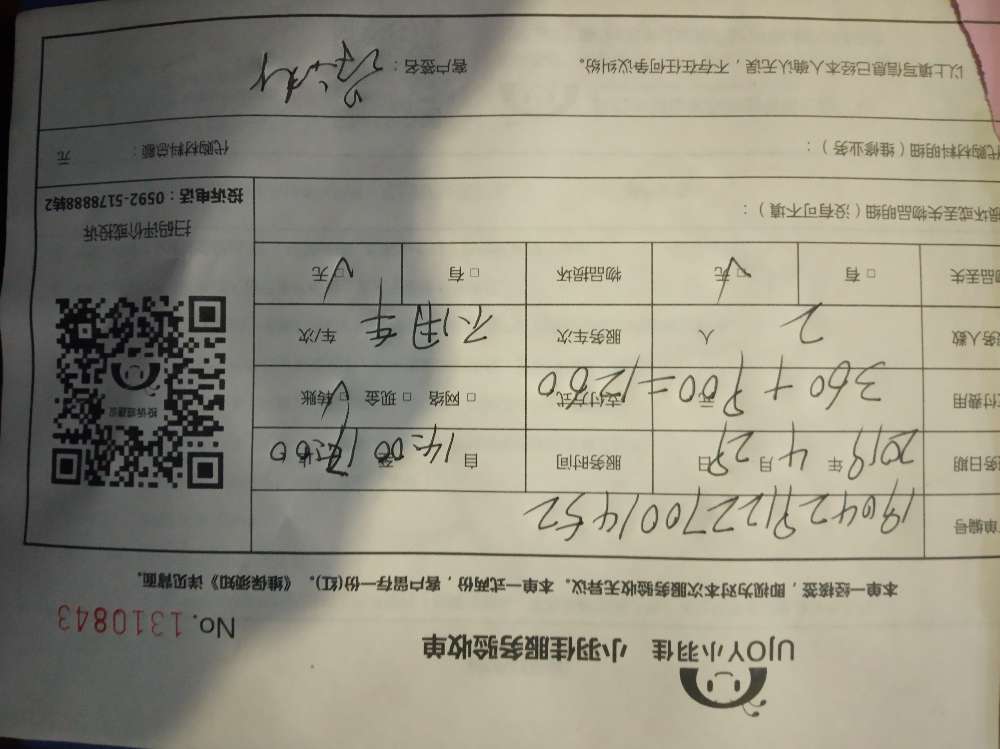 UJOY小羽佳 小羽佳服务验收单
No. 1310843
本单一经核签，即视为对本次服务验收无异议。本单一式两份，客户留存一份(红)。《维保须知》详见背面。
单编号 1904291227001452
务日期 2019年4月29日 服务时间 自14:00至18:00止
付费用 360+900=1260元 支付方式 □网络 □现金 □转账
务人数 2人 服务车次 不用车 车/次
品丢失 □有 □无 物品损坏 □有 □无
损坏或丢失物品明细（没有可不填）：
投诉或建议
扫码评价或投诉
投诉电话：0592-5178888转2
代购材料明细（维修业务）： 代购材料总额： 元
以上填写信息已经本人确认无误，不存在任何争议纠纷。 客户签名：